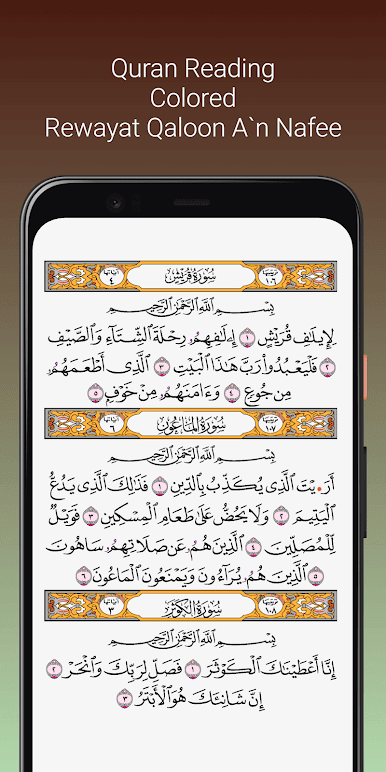 Quran Reading
Colored
Rewayat Qaloon A`n Nafee
ترتيبها ١٠٦ سُورَةُ قُرَيْشٍ آياتها ٤
بِسْمِ اللَّهِ الرَّحْمَٰنِ الرَّحِيمِ
لِإِيلَٰفِ قُرَيْشٍ ١ إِۦلَٰفِهِمُۥ رِحْلَةَ الشِّتَآءِ وَالصَّيْفِ
٢ فَلْيَعْبُدُواْ رَبَّ هَٰذَا الْبَيْتِ ٣ الَّذِے أَطْعَمَهُمُۥ
مِن جُوعٍ ٤ وَءَامَنَهُمُۥ مِنْ خَوْفٍ ٥
ترتيبها ١٠٧ سُورَةُ الْمَاعُونِ آياتها ٦
بِسْمِ اللَّهِ الرَّحْمَٰنِ الرَّحِيمِ
أَرَ.يْتَ الَّذِے يُكَذِّبُ بِالدِّينِ ١ فَذَٰلِكَ الَّذِے يَدُعُّ
الْيَتِيمَ ٢ وَلَا يَحُضُّ عَلَىٰ طَعَامِ الْمِسْكِينِ ٣ فَوَيْلٌ
لِّلْمُصَلِّينَ ٤ الَّذِينَ هُمُۥ عَن صَلَاتِهِمُۥ سَاهُونَ
٥ الَّذِينَ هُمُۥ يُرَآءُونَ وَيَمْنَعُونَ الْمَاعُونَ ٦
ترتيبها ١٠٨ سُورَةُ الْكَوْثَرِ آياتها ٣
بِسْمِ اللَّهِ الرَّحْمَٰنِ الرَّحِيمِ
إِنَّا أَعْطَيْنَٰكَ الْكَوْثَرَ ١ فَصَلِّ لِرَبِّكَ وَانْحَرْ ٢
إِنَّ شَانِئَكَ هُوَ الْأَبْتَرُ ٣